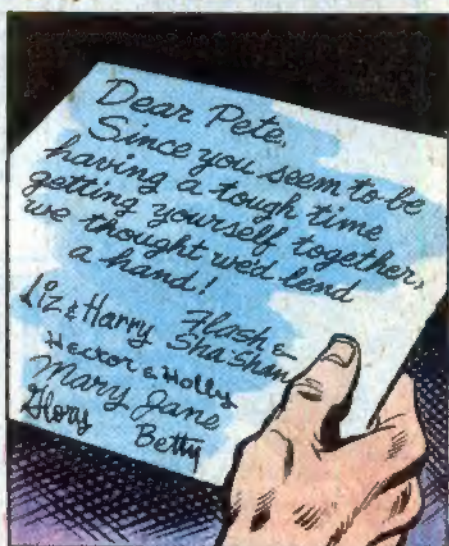 Dear Pete,
Since you seem to be
having a tough time
getting yourself together,
we thought we'd lend
a hand!
Liz & Harry Flash &
Sha Shan
Hector & Holly
Mary Jane
Glory Betty